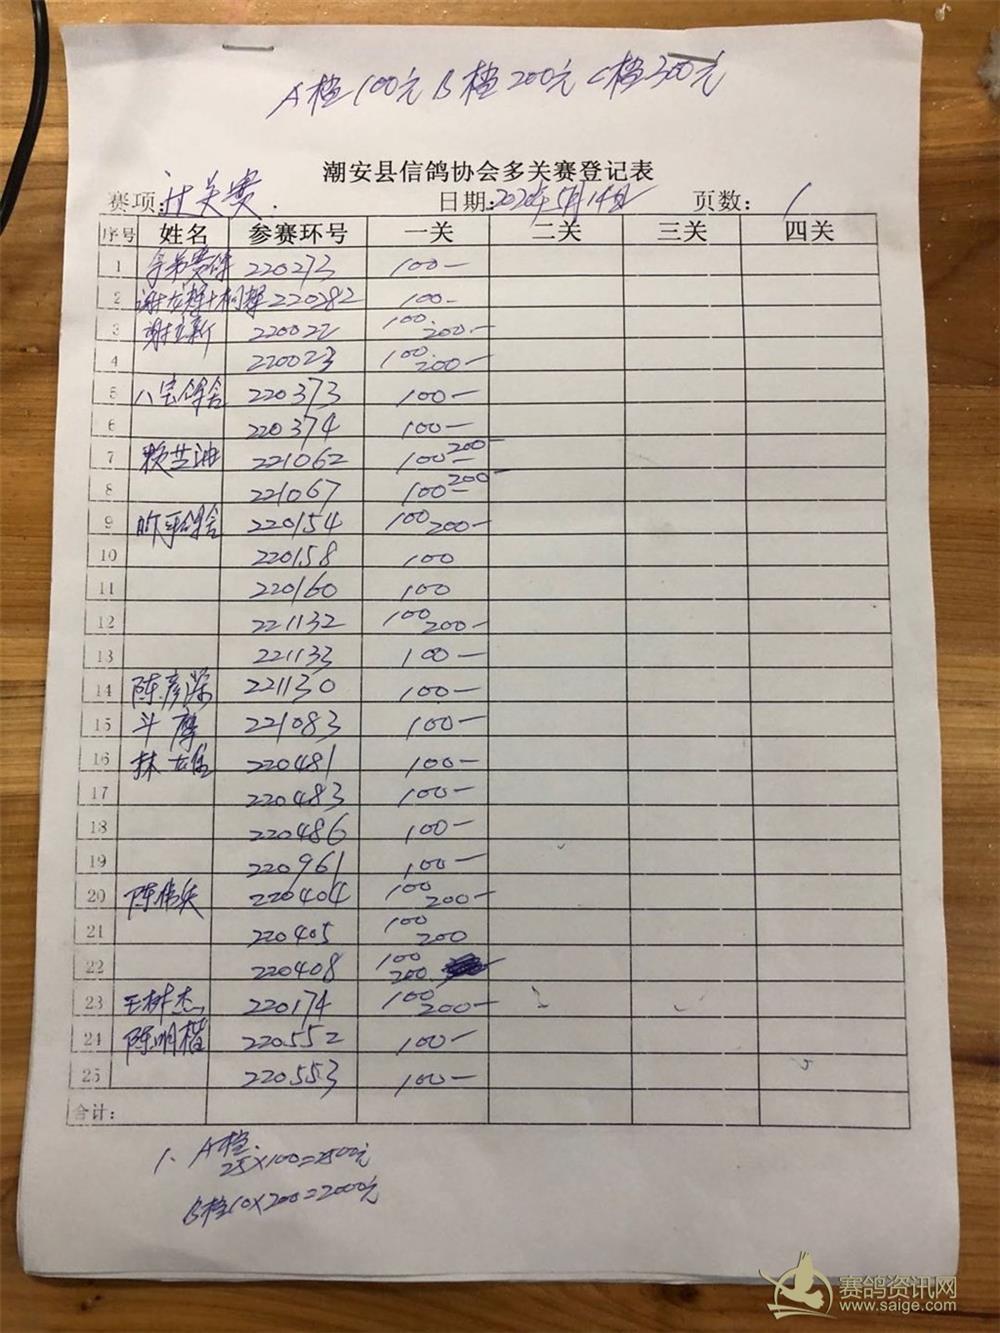 A档100元 B档200元 C档300元
潮安县信鸽协会多关赛登记表
赛项:过关赛. 日期:2020年5月14日 页数: 1
序号 姓名 参赛环号 一关 二关 三关 四关
1 220273 100-
2 谢左辉+ 220282 100-
3 220022 100 200-
4 220023 100 200-
5 八宝鸽舍 220373 100-
6 220374 100-
7 221062 100 200-
8 221067 100 200-
9 鸽舍 220154 100 200-
10 220158 100
11 220160 100
12 221132 100 200-
13 221133 100-
14 陈彦深 221130 100-
15 斗摩 221083 100-
16 林 220481 100-
17 220483 100-
18 220486 100-
19 220961 100-
20 陈伟 220404 100 200-
21 220405 100 200
22 220408 100 200
23 王树杰 220174 100 200-
24 陈明楷 220552 100-
25 220553 100-
合计:
1、A档.
25×100=2500元
B档10×200=2000元
赛鸽资讯网
www.saige.com